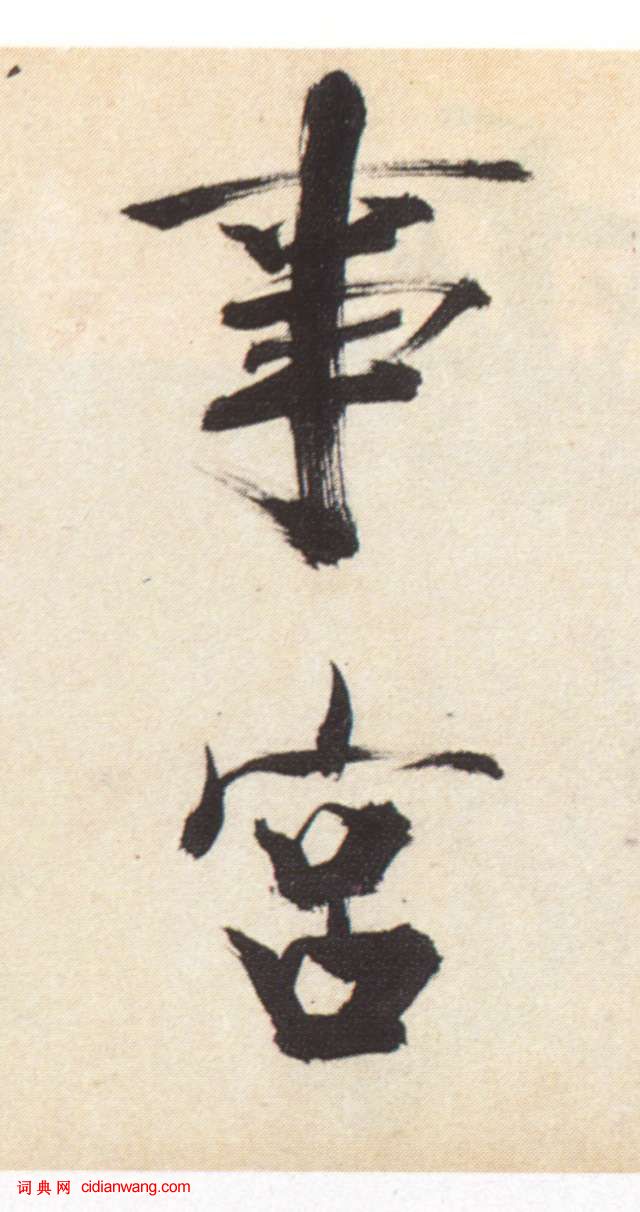 事宮
词典网 cidianwang.com